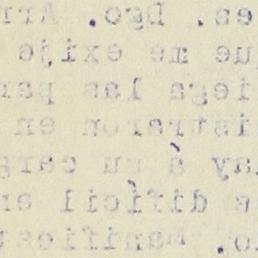 es. Dgo. Ar
ue me exije
iega las par
istraron en
ay á su carg
s difícil en
o. Manifiest